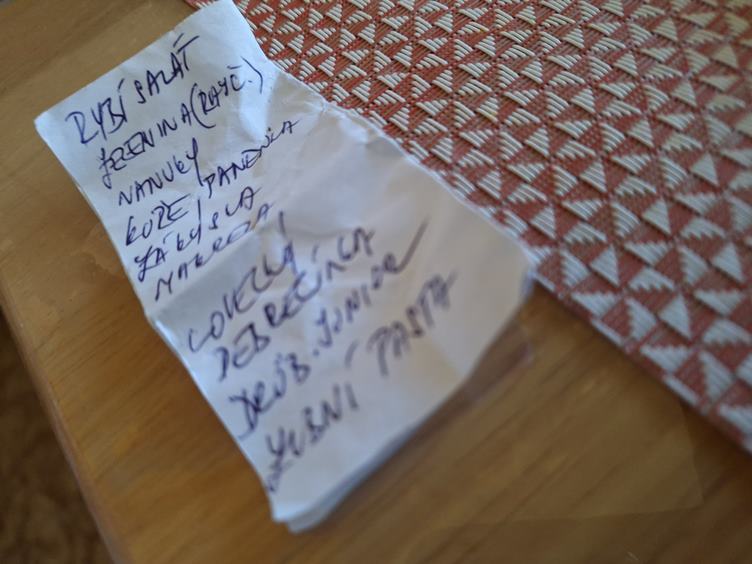 RYBÍ SALÁT
ZELENINA (RAJČ.)
NANUKY
KUŘE, PANENKA
ZÁKYSLA
DEBRECÍNKA
DRŮB. JUNIOR
ZUBNÍ PASTA